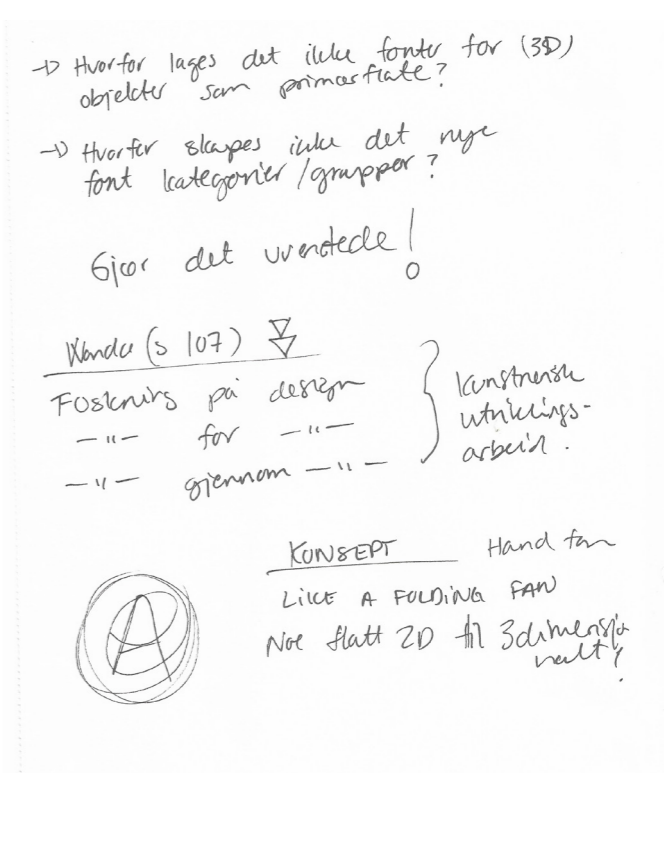 → Hvorfor lages det ikke fonter for (3D)
objekter som primærflate?
→ Hvorfor skapes ikke det nye
font kategorier/grupper?
Gjør det uventede!
(s 107)
Fosknirs på design
—"— for —"—
—"— gjennom —"—
kunstnerisk
utviklings-
arbeid.
KONSEPT Hand fan
LIKE A FOLDING FAN
Noe flatt 2D til 3dimensjo
nalt?
A